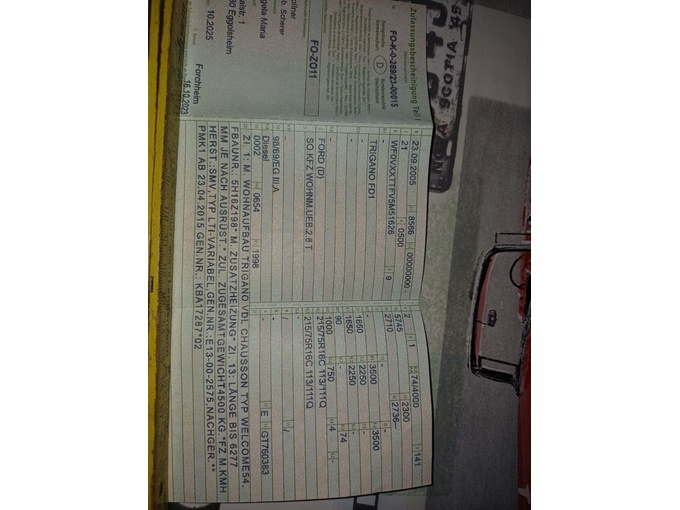 Zulassungsbescheinigung Teil I
FO-K-0-289/23-00015
Europäische Gemeinschaft
D
Bundesrepublik Deutschland
FO-ZO11
ollner
b. Scherer
gela Maria
alstr. 1
30 Eggolsheim
10.2025
Forchheim
16.10.2023
23.09.2005
8566
00000000 -
21
0500
WF0VXXTTFV5M51626
9
TRIGANO FD1
-
-
FORD (D)
SO.KFZ.WOHNM.UEB.2,8 T
-
98/69/EG III,A
Diesel
0002
0654
1998
2
1
74/4000
141
5745
2300
2710
2736--
-
3500
3500
1650
2250
-
1650
2250
-
90
-
74
1000
750
4
-
215/75R16C 113/111Q
215/75R16C 113/111Q
-
/
/
-
-
E
GT760383
ZI. 1: M. WOHNAUFBAU TRIGANO VDL CHAUSSON TYP WELCOME54,
FBAUNR.: 5H16Z198* M. ZUSATZHEIZUNG* ZI. 13: LÄNGE BIS 6277
MM JE NACH AUSRÜST.* ZUL. ZUGESAMTGEWICHT4500 KG *FZ.M.KMH
HERST.:SMV,TYP LTI-VARIABEL,GEN.NR.:E13-00-2575,NACHGER.**
PMK1 AB 23.04.2015 GEN.NR.: KBA17287*02